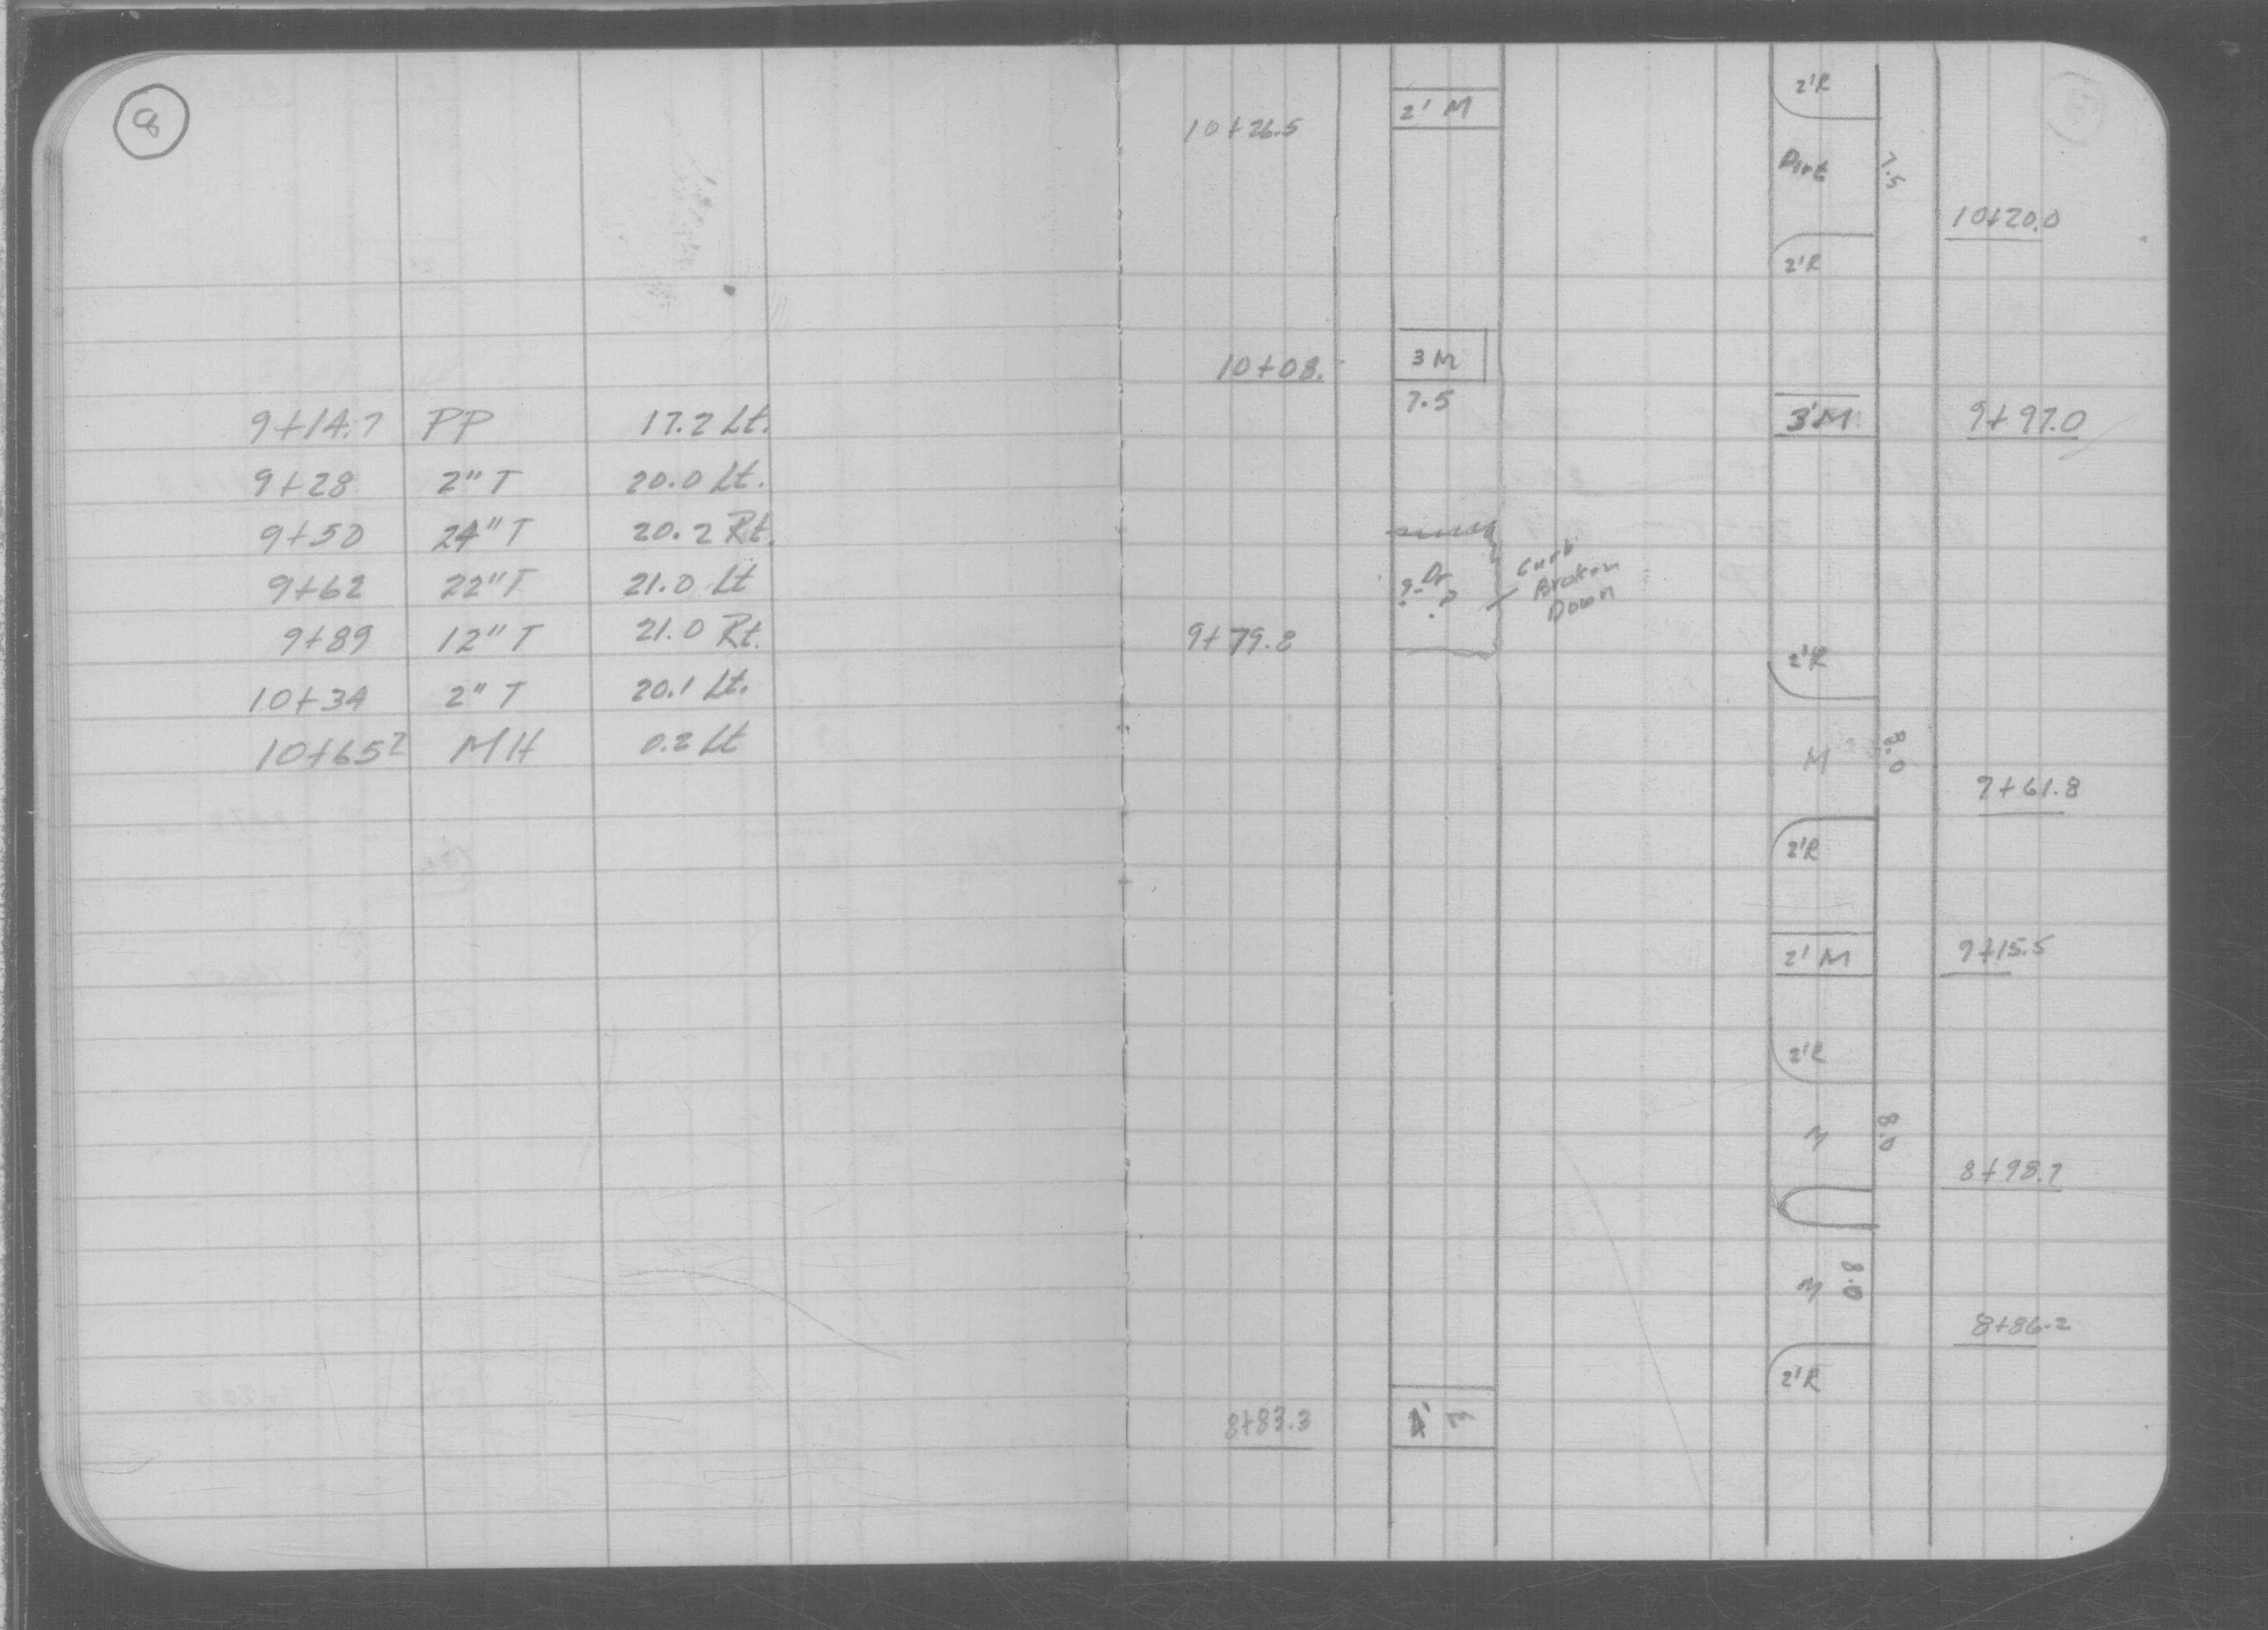 8
9+14.7 PP 17.2 Lt.
9+28 2" T 20.0 Lt.
9+50 24" T 20.2 Rt.
9+62 22" T 21.0 Lt
9+89 12" T 21.0 Rt.
10+34 2" T 20.1 Lt.
10+65² MH 0.2 Lt
2'R
10+26.5 2' M
Dirt 7.5
10+20.0
2'R
10+08. 3 M
7.5
3'M 9+97.0
Curb
Broken
Down
?-Dr
?
9+79.8
2'R
M 8.0
9+61.8
2'R
2' M 9+15.5
2'R
M 8.0
8+98.7
M 8.0
8+86.2
2'R
8+83.3 4' M